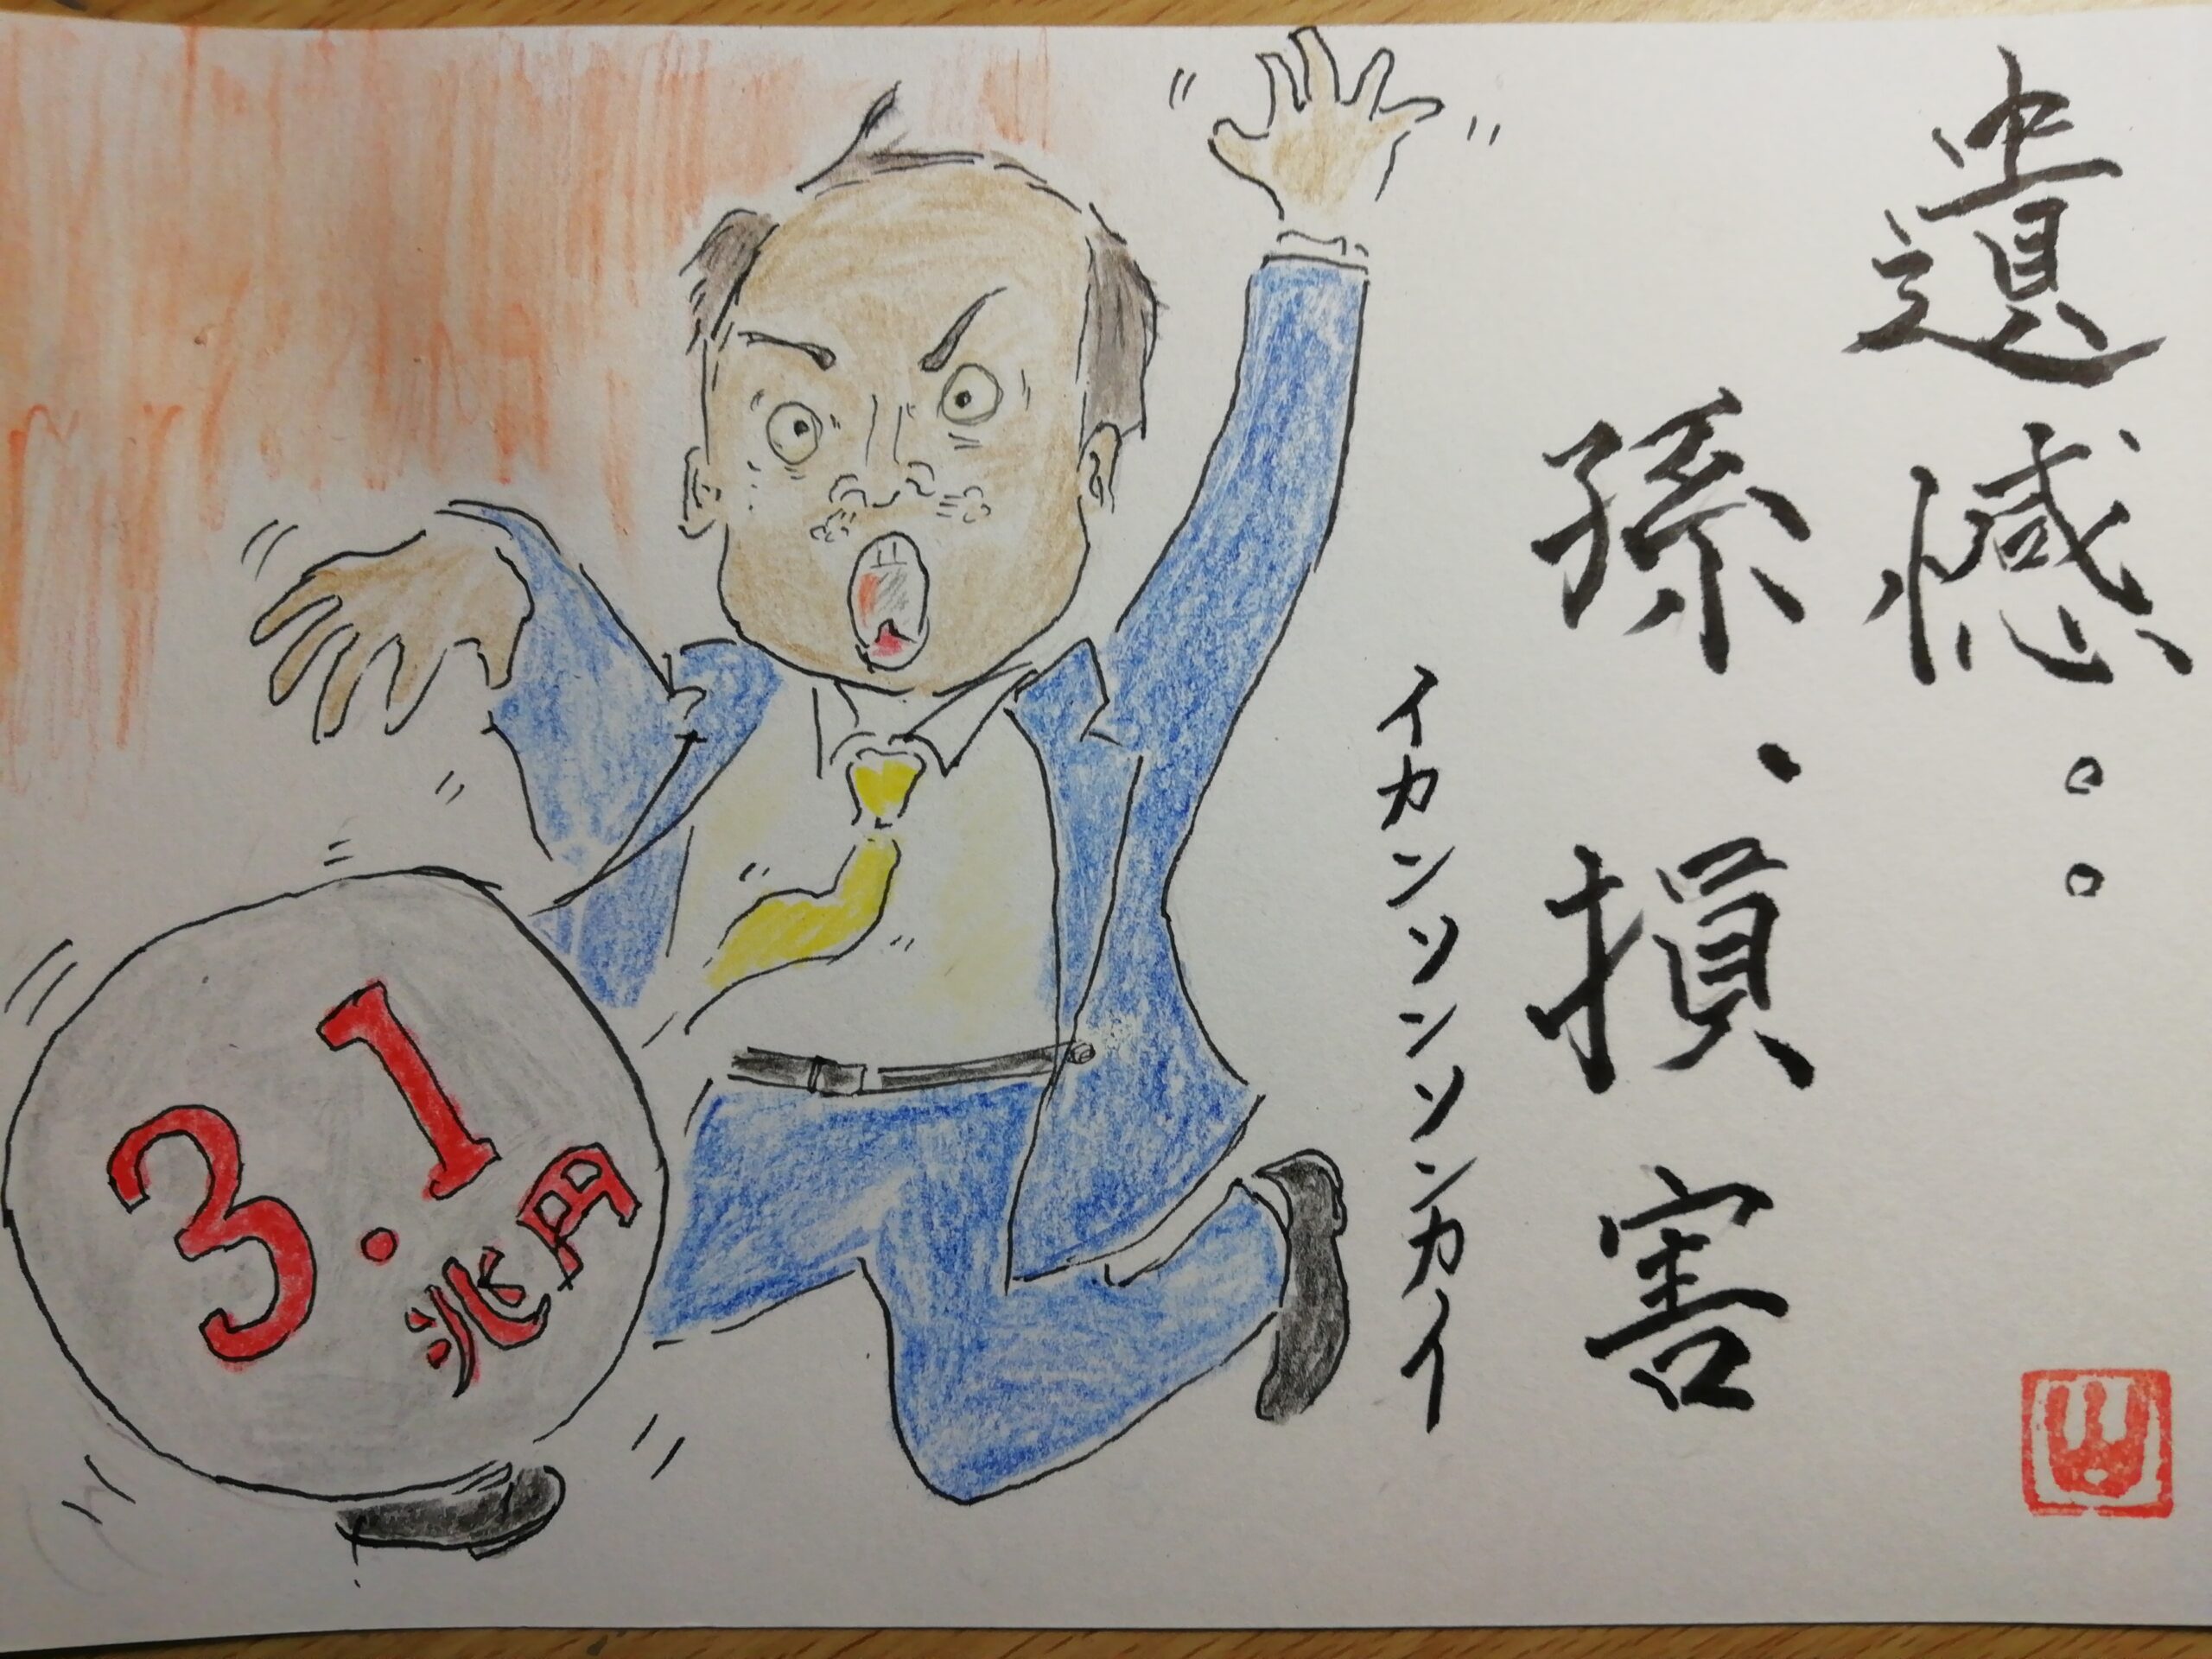 遺憾。。
孫、損害
イカンソンソンカイ
3.1
兆円